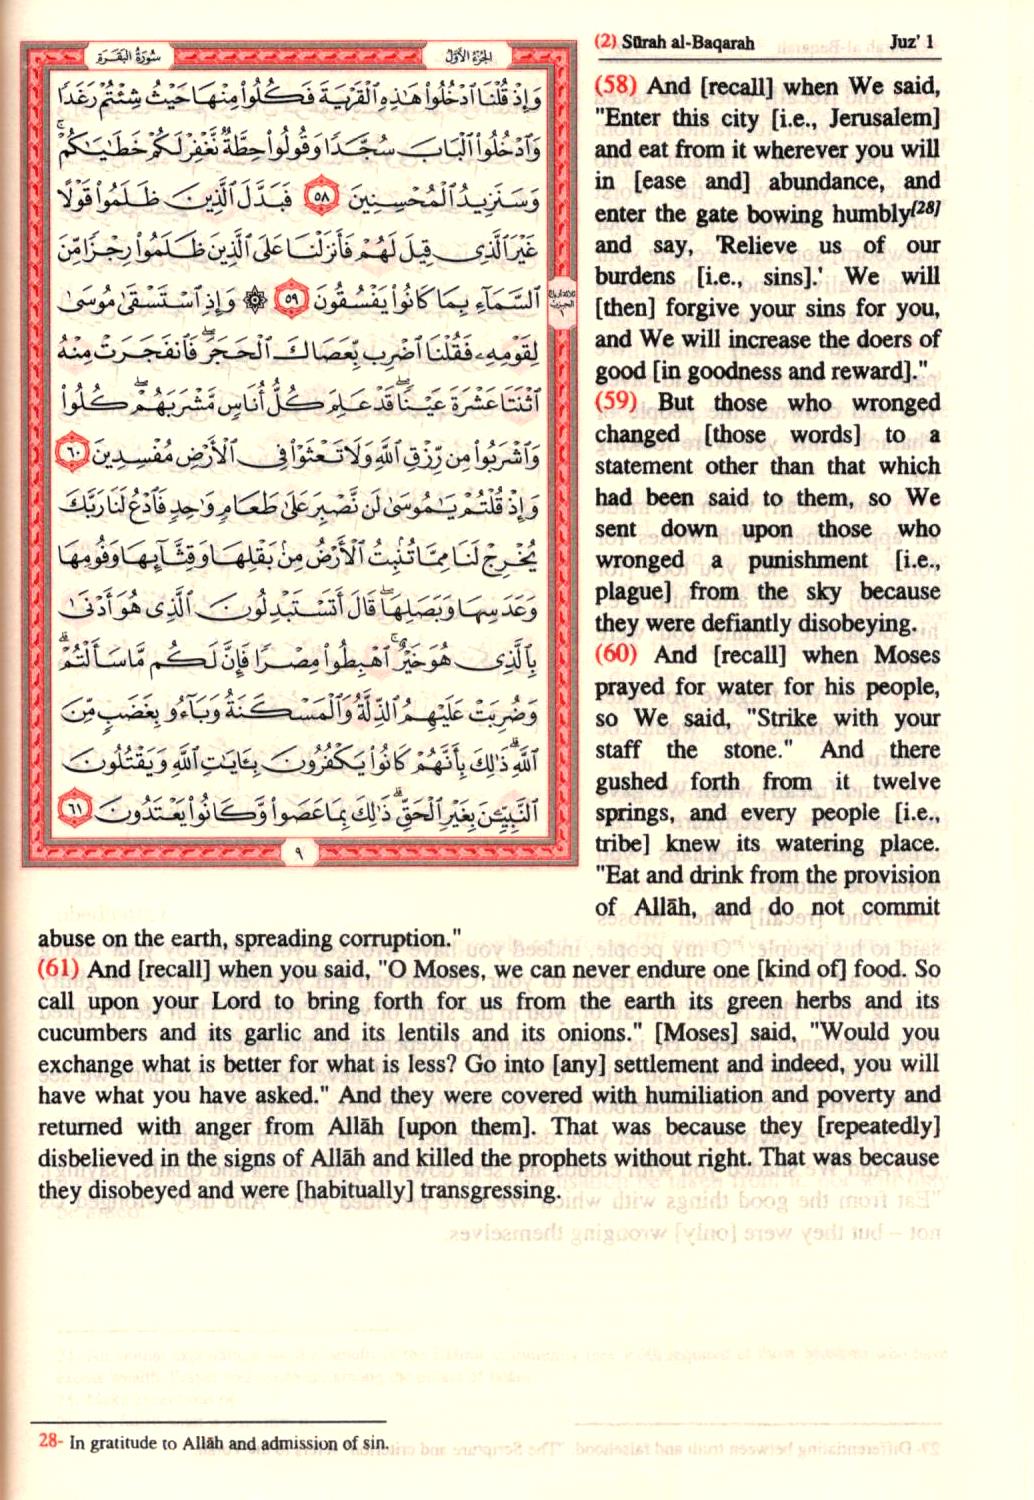 (2) Sūrah al-Baqarah Juz' 1
سُورَةُ الْبَقَرَةِ الجُزْءُ الأَوَّلُ
وَإِذْ قُلْنَا ٱدْخُلُوا۟ هَـٰذِهِ ٱلْقَرْيَةَ فَكُلُوا۟ مِنْهَا حَيْثُ شِئْتُمْ رَغَدًا
وَٱدْخُلُوا۟ ٱلْبَابَ سُجَّدًا وَقُولُوا۟ حِطَّةٌ نَّغْفِرْ لَكُمْ خَطَـٰيَـٰكُمْ ۚ
وَسَنَزِيدُ ٱلْمُحْسِنِينَ ٥٨ فَبَدَّلَ ٱلَّذِينَ ظَلَمُوا۟ قَوْلًا
غَيْرَ ٱلَّذِى قِيلَ لَهُمْ فَأَنزَلْنَا عَلَى ٱلَّذِينَ ظَلَمُوا۟ رِجْزًا مِّنَ
ٱلسَّمَآءِ بِمَا كَانُوا۟ يَفْسُقُونَ ٥٩ ۞ وَإِذِ ٱسْتَسْقَىٰ مُوسَىٰ
لِقَوْمِهِۦ فَقُلْنَا ٱضْرِب بِّعَصَاكَ ٱلْحَجَرَ ۖ فَٱنفَجَرَتْ مِنْهُ
ٱثْنَتَا عَشْرَةَ عَيْنًا ۖ قَدْ عَلِمَ كُلُّ أُنَاسٍ مَّشْرَبَهُمْ ۖ كُلُوا۟
وَٱشْرَبُوا۟ مِن رِّزْقِ ٱللَّهِ وَلَا تَعْثَوْا۟ فِى ٱلْأَرْضِ مُفْسِدِينَ ٦٠
وَإِذْ قُلْتُمْ يَـٰمُوسَىٰ لَن نَّصْبِرَ عَلَىٰ طَعَامٍ وَٰحِدٍ فَٱدْعُ لَنَا رَبَّكَ
يُخْرِجْ لَنَا مِمَّا تُنۢبِتُ ٱلْأَرْضُ مِنۢ بَقْلِهَا وَقِثَّآئِهَا وَفُومِهَا
وَعَدَسِهَا وَبَصَلِهَا ۖ قَالَ أَتَسْتَبْدِلُونَ ٱلَّذِى هُوَ أَدْنَىٰ
بِٱلَّذِى هُوَ خَيْرٌ ۚ ٱهْبِطُوا۟ مِصْرًا فَإِنَّ لَكُم مَّا سَأَلْتُمْ ۗ
وَضُرِبَتْ عَلَيْهِمُ ٱلذِّلَّةُ وَٱلْمَسْكَنَةُ وَبَآءُو بِغَضَبٍ مِّنَ
ٱللَّهِ ۗ ذَٰلِكَ بِأَنَّهُمْ كَانُوا۟ يَكْفُرُونَ بِـَٔايَـٰتِ ٱللَّهِ وَيَقْتُلُونَ
ٱلنَّبِيِّـۧنَ بِغَيْرِ ٱلْحَقِّ ۗ ذَٰلِكَ بِمَا عَصَوا۟ وَّكَانُوا۟ يَعْتَدُونَ ٦١
٩
(58) And [recall] when We said,
"Enter this city [i.e., Jerusalem]
and eat from it wherever you will
in [ease and] abundance, and
enter the gate bowing humbly[28]
and say, 'Relieve us of our
burdens [i.e., sins].' We will
[then] forgive your sins for you,
and We will increase the doers of
good [in goodness and reward]."
(59) But those who wronged
changed [those words] to a
statement other than that which
had been said to them, so We
sent down upon those who
wronged a punishment [i.e.,
plague] from the sky because
they were defiantly disobeying.
(60) And [recall] when Moses
prayed for water for his people,
so We said, "Strike with your
staff the stone." And there
gushed forth from it twelve
springs, and every people [i.e.,
tribe] knew its watering place.
"Eat and drink from the provision
of Allāh, and do not commit
abuse on the earth, spreading corruption."
(61) And [recall] when you said, "O Moses, we can never endure one [kind of] food. So
call upon your Lord to bring forth for us from the earth its green herbs and its
cucumbers and its garlic and its lentils and its onions." [Moses] said, "Would you
exchange what is better for what is less? Go into [any] settlement and indeed, you will
have what you have asked." And they were covered with humiliation and poverty and
returned with anger from Allāh [upon them]. That was because they [repeatedly]
disbelieved in the signs of Allāh and killed the prophets without right. That was because
they disobeyed and were [habitually] transgressing.
28- In gratitude to Allāh and admission of sin.